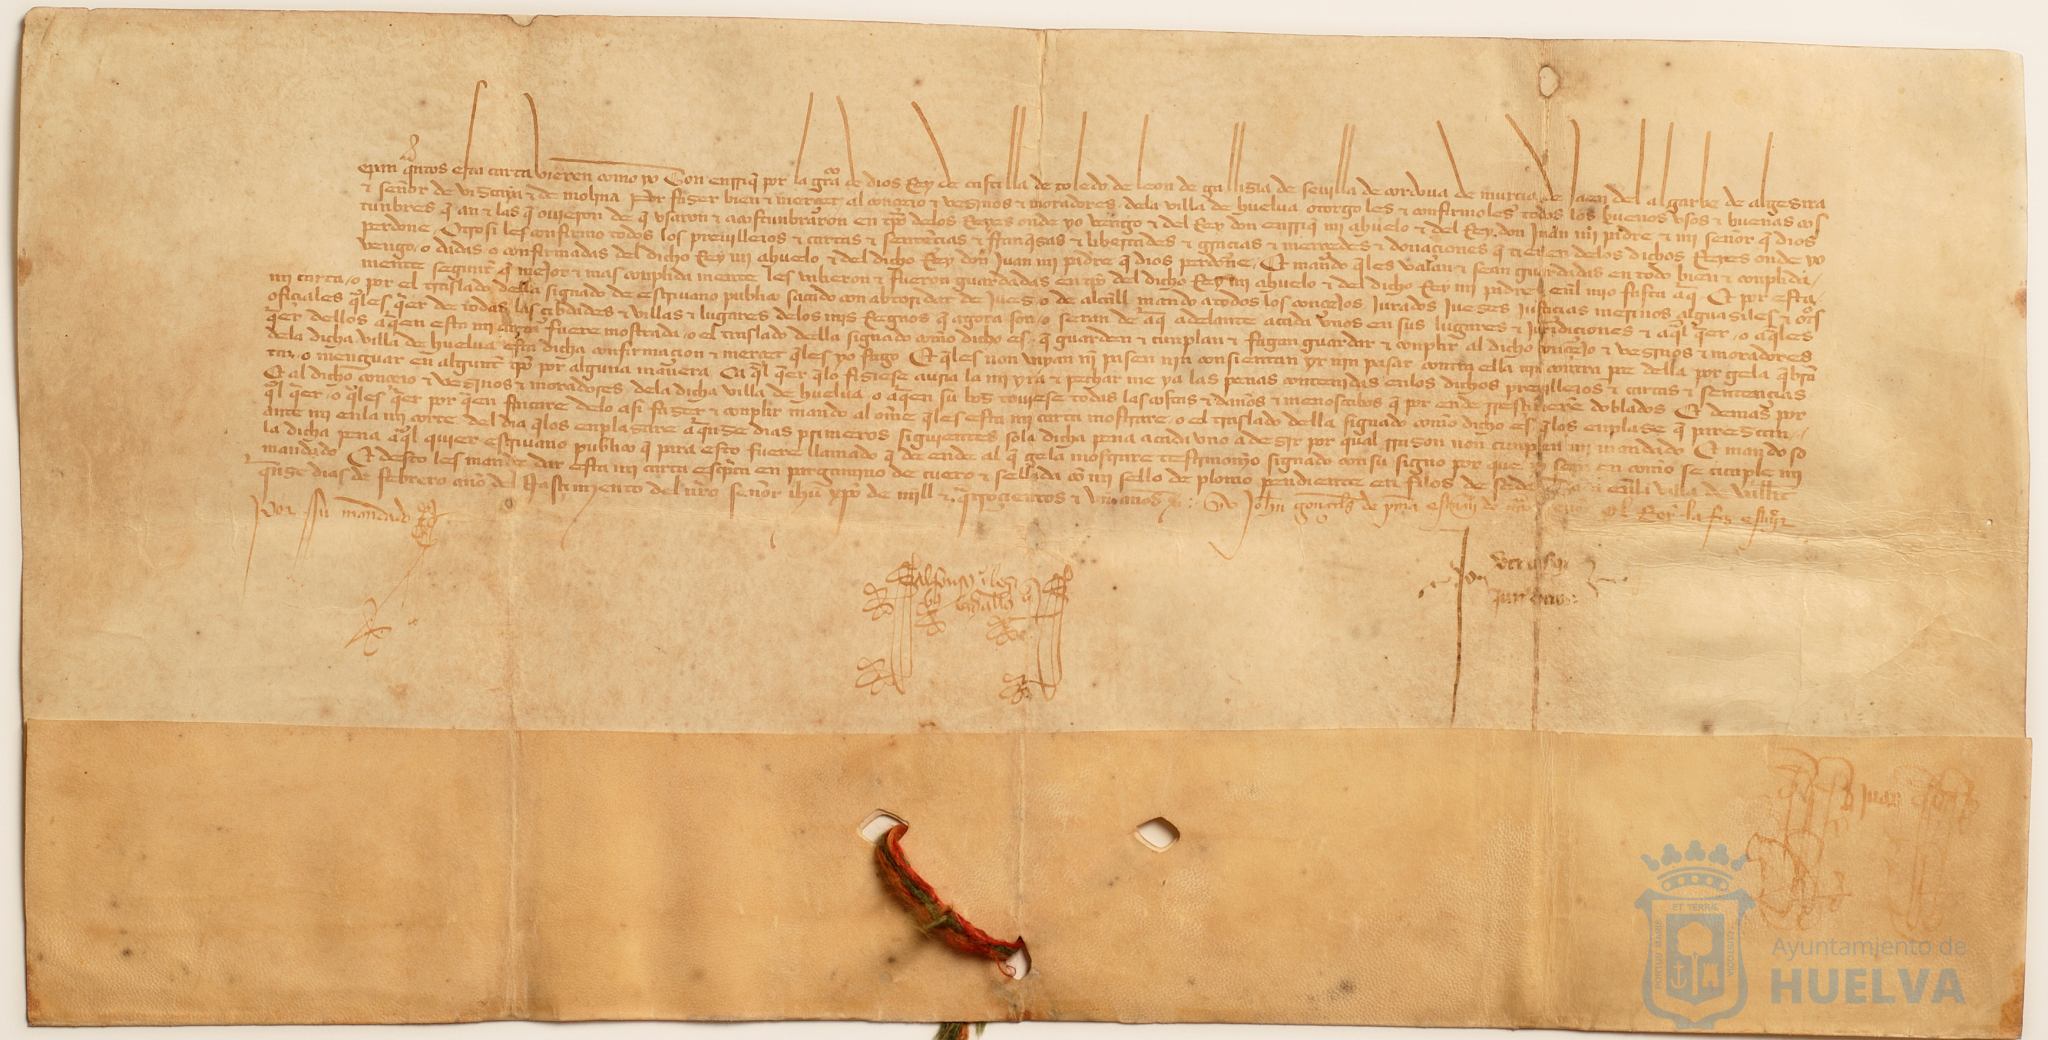 epan qntos esta carta vieren como yo Don enrriq por la gra de dios Rey de castilla de toledo de leon de gallizia de seuilla de cordoua de murcia de Jaen del algarbe de algezira
& señor de vizcaya & de molina Por fazer bien & merçet al conçejo & vezinos & moradores dela villa de huelua otorgo les & confirmoles todos los buenos vsos & buenas cos
tunbres q an & las q ouieron de q vsaron & acostunbraron en tpo delos Reyes onde yo vengo & del Rey don enrriq mi abuelo & del Rey don Juan mi padre & mi señor q dios
perdone Otrosi les confirmo todos los preuillejos & cartas & sentençias & franqsas & libertades & graçias & merçedes & donaçiones q tienen delos dichos Reyes onde yo
vengo o dadas o confirmadas del dicho Rey mi abuelo & del dicho Rey don Juan mi padre q dios perdone Et mando qles valan & sean guardadas en todo bien & conplida
mente segunt q mejor & mas conplida mente les valieron & fueron guardadas en tpo del dicho Rey mi abuelo & del dicho Rey mi padre & enl mio fasta aq Et por esta
mi carta o por el traslado della signado de escriuano publico sacado con abtoridat de Juez o de alcall mando atodos los conçejos Jurados Juezes Justiçias merinos alguaziles & otros
ofiçiales qles qer de todas las çibdades & villas & lugares delos mis Regnos q agora son o seran de aq adelante acada vnos en sus lugares & Juridiçiones & aql qer o aqles
qer dellos aqen esta mi carta fuere mostrada o el traslado della signado como dicho es q guarden & cunplan & fagan guardar & conplir al dicho conçejo & vezinos & moradores
dela dicha villa de huelua esta dicha confirmaçion & merçet qles yo fago Et qles non vayan nj pasen njn consientan yr njn pasar contra ella nin contra pte della por gela qbra
tar o menguar en algunt tpo por alguna manera Ca ql qer qlo fiziese auria la mi yra & pechar me ya las penas contenidas enlos dichos preuillejos & cartas & sentençias
Et al dicho conçejo & vezinos & moradores dela dicha villa de huelua o aqen su boz touiese todas las costas & daños & menoscabos q por ende rresçibieren doblados Et demas por
ql qer o qles qer por qen fincare delo asi fazer & conplir mando al ome qles esta mi carta mostrare o el traslado della signado como dicho es qlos enplaze q parezcan
ante mi enla mi corte del dia qlos enplazare a qnze dias primeros siguientes sola dicha pena acada vno a dezir por qual rrazon non cunplen mi mandado Et mando so
la dicha pena aql quier escriuano publico q para esto fuere llamado q de ende al q gela mostrare testimonio signado con su signo por que yo sepa en como se cunple mi
mandado Et desto les mande dar esta mi carta escpta en pargamino de cuero & sellada co mi sello de plomo pendiente en filos de seda enla villa de vall
qnze dias de febrero año del Nasçimiento del nro señor ihu xpo de mill & qtroçientos & vn años Yo Johan gonçalez de pma escriuano de nro señor el Rey la fiz escriuir
por su mandado
Juan
Ayuntamiento de
HUELVA